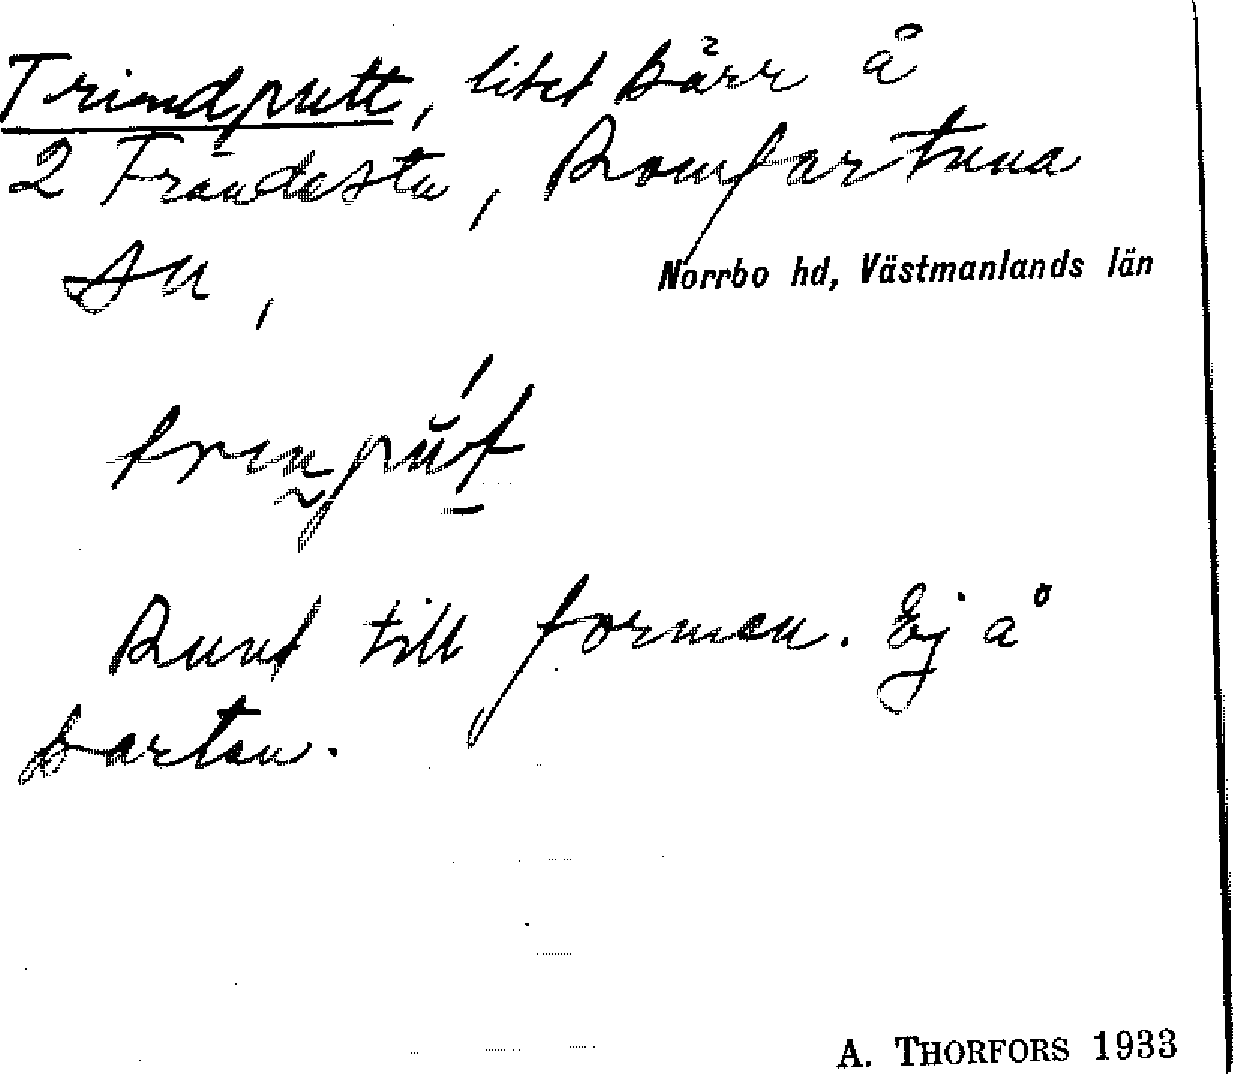 Trindputt, litet kärr å
2 Frändesta, Romfartuna
sn,
Norrbo hd, Västmanlands län
Rund till formen. Ej å
kartan.
A. THORFORS 1933